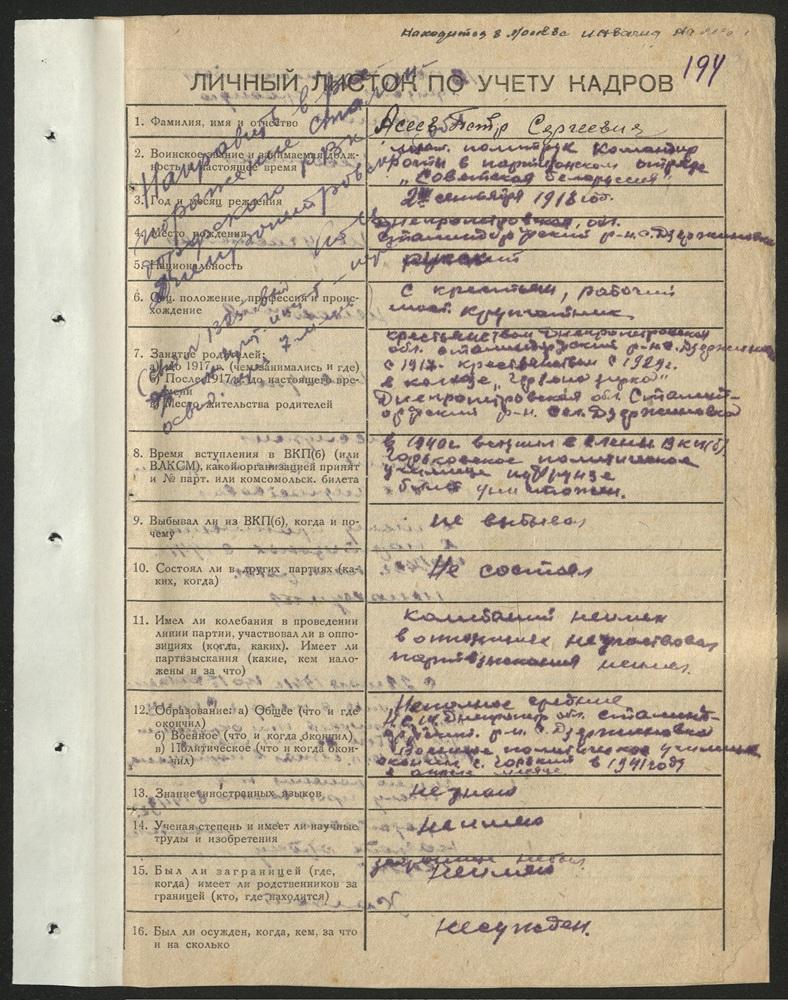 Находится в Москве инвалид
194
ЛИЧНЫЙ ЛИСТОК ПО УЧЕТУ КАДРОВ
1. Фамилия, имя и отчество
Асеев Петр Сергеевич
2. Воинское звание и занимаемая долж-
ность в настоящее время
политрук Командир
роты в партизанском отряде
„Советская Белоруссия"
3. Год и месяц рождения
2 сентября 1918 год.
4. Место рождения
Днепропетровская, обл.
Сталиндорфский р-н с. Дзержиновка
5. Национальность
русский
6. Соц. положение, профессия и проис-
хождение
с крестьян, рабочий
7. Занятие родителей:
а) до 1917 г. (чем занимались и где)
б) После 1917 г. до настоящего вре-
мени
в) Место жительства родителей
крестьянством Днепропетровская
обл. Сталиндорфский р-н с. Дзержиновка
с 1917 крестьянством с 1929 г.
в колхозе „Червона зирка"
Днепропетровская обл. Сталинд-
орфский р-н. сел. Дзержиновка
8. Время вступления в ВКП(б) (или
ВЛКСМ), какой организацией принят
и № парт. или комсомольск. билета
в 1940 г вступил в члены ВКП(б)
Горьковское политическое
училище им Фрунзе
билет уничтожен.
9. Выбывал ли из ВКП(б), когда и по-
чему
не выбывал
10. Состоял ли в других партиях (ка-
ких, когда)
Не состоял
11. Имел ли колебания в проведении
линии партии, участвовал ли в оппо-
зициях (когда, каких). Имеет ли
партвзыскания (какие, кем нало-
жены и за что)
колибаний неимел
в опозициях неучаствовал
партвзыскания неимел.
12. Образование: а) Общее (что и где
окончил)
б) Военное (что и когда окончил)
в) Политическое (что и когда окон-
чил)
Неполное средние
Н.С.Ш. Днепропетр обл. Сталинд-
орфский. р-н. с. Дзержиновка
Военное политическое училище
окончил г. Горький в 1941 году
13. Знание иностранных языков
незнаю
14. Ученая степень и имеет ли научные
труды и изобретения
неимею
15. Был ли заграницей (где,
когда) имеет ли родственников за
границей (кто, где находится)
заграницей небыл
неимею
16. Был ли осужден, когда, кем, за что
и на сколько
несужден.